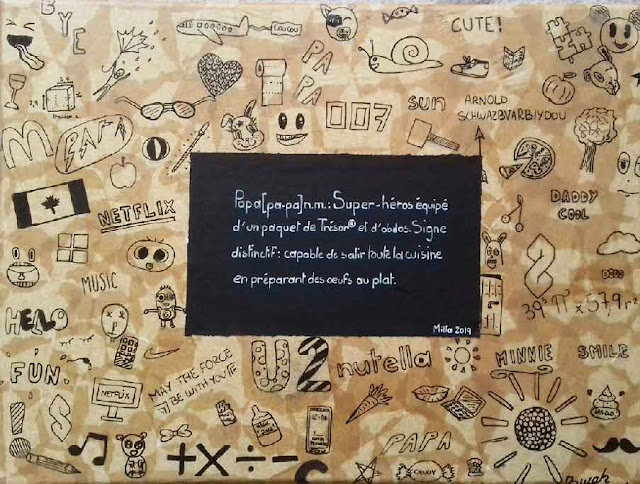 BYE
COUCOU
CUTE!
PA
PA
007
sun
ARNOLD
SCHWAZBVARBIYDOU
PAPA
NETFLIX
Papa[pa-pa]n.m.: Super-héros équipé
d'un paquet de Trésor® et d'abdos. Signe
distinctif: capable de salir toute la cuisine
en préparant des oeufs au plat.
Milla 2019
DADDY
COOL
MUSIC
HELLO
U2
nutella
MINNIE
SMILE
FUN
MAY THE FORCE
BE WITH YOU
NETFLIX
PAPA
CANDY